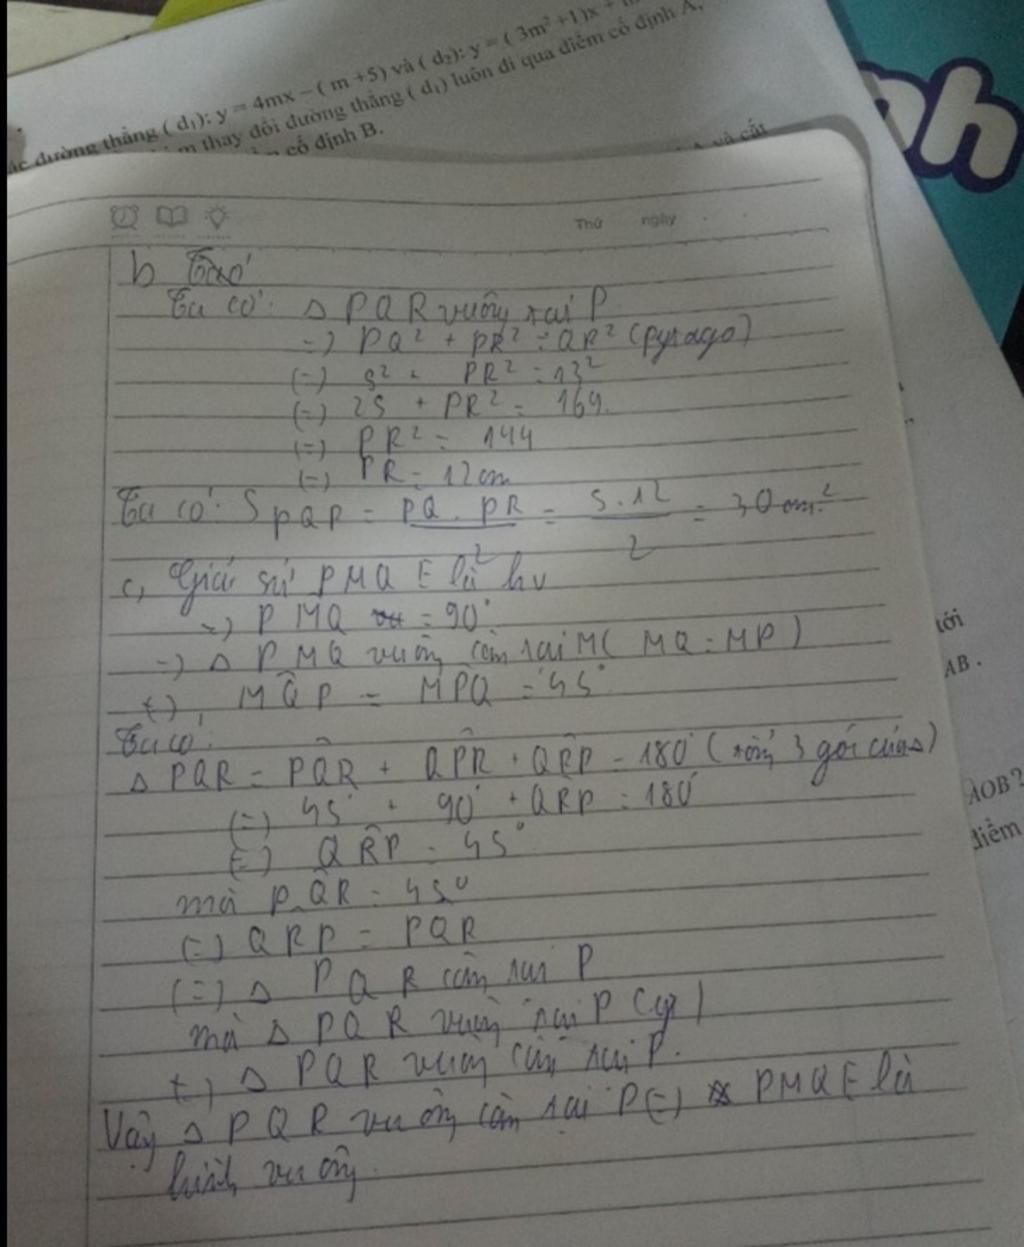 ác đường thẳng ( d₁): y = 4mx − ( m +5) và ( d₂): y = ( 3m² +1)x +
m thay đổi đường thẳng ( d₁) luôn đi qua điểm cố định A,
cố định B.
và cắt
nh
Thứ ngày
b
Ta có: Δ PQR vuông tại P
=) PQ² + PR² = QR² (pytago)
(=) 5² + PR² = 13²
(=) 25 + PR² = 169.
(=) PR² = 144
(=) PR = 12cm
Ta có: S PQR = PQ . PR / 2 = 5 . 12 / 2 = 30 cm²
c, Giả sử PMQE là hv
=) PMQ = 90°
=) Δ PMQ vuông cân tại M( MQ = MP )
(=) MQ̂P = MP̂Q = 45°
Ta có:
Δ PQR = PQ̂R + QP̂R + QR̂P = 180° (tổng 3 gói của Δ)
(=) 45° + 90° + QRP = 180°
(=) QR̂P = 45°
mà PQ̂R = 45°
(=) QRP = PQR
(=) Δ PQR cân tại P
mà Δ PQR vuông tại P (gt)
(=) Δ PQR vuông cân tại P.
Vậy Δ PQR vuông cân tại P (=) PMQE là
hình vuông.
tới
AB .
AOB ?
điểm